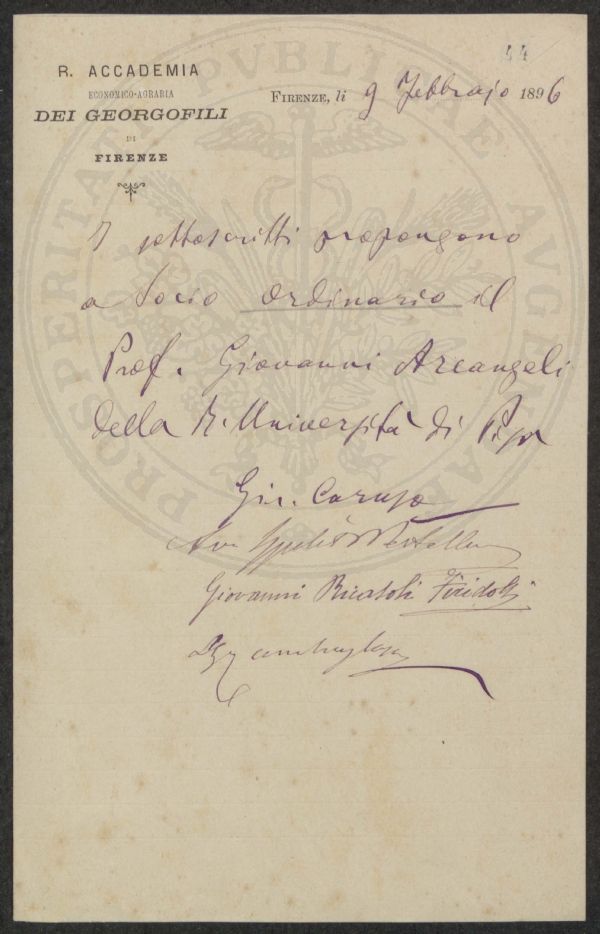 44
R. ACCADEMIA
ECONOMICO-AGRARIA
DEI GEORGOFILI
DI
FIRENZE
FIRENZE, lì 9 Febbrajo 1896
PROSPERITATI PVBLICAE AVGENDAE
I sottoscritti propongono
a Socio Ordinario il
Prof. Giovanni Arcangeli
della R. Università di Pisa
Gir. Caruso
Giovanni Ricasoli Firidolfi